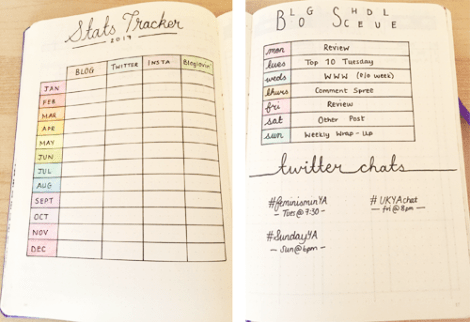 Stats Tracker
2019
BLOG TWITTER INSTA Bloglovin'
JAN
FEB
MAR
APR
MAY
JUN
JUL
AUG
SEPT
OCT
NOV
DEC
BLOG SCHEDULE
mon Review
tues Top 10 Tuesday
weds WWW (e/o week)
thurs Comment Spree
fri Review
sat Other Post
sun Weekly Wrap-Up
twitter chats
#feminisminYA
- Tues @ 7:30 -
#UKYAchat
- fri @ 8pm -
#SundayYA
- Sun @ 6pm -